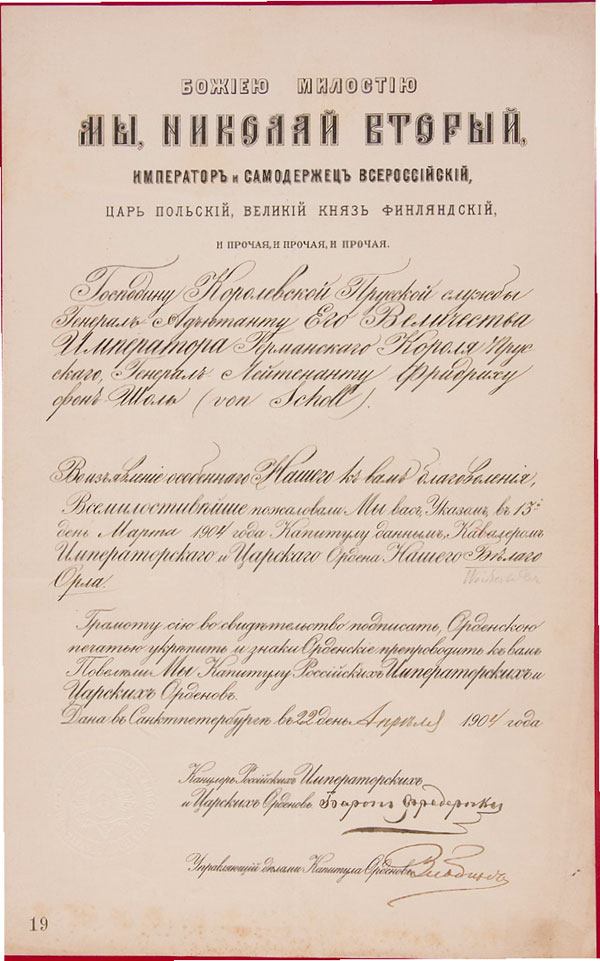 БОЖІЕЮ МИЛОСТІЮ
МЫ, НИКОЛАЙ ВТОРЫЙ,
ИМПЕРАТОРЪ и САМОДЕРЖЕЦЪ ВСЕРОССІЙСКІЙ,
ЦАРЬ ПОЛЬСКІЙ, ВЕЛИКІЙ КНЯЗЬ ФИНЛЯНДСКІЙ,
И ПРОЧАЯ, И ПРОЧАЯ, И ПРОЧАЯ.
Господину Королевской Прусской службы
Генералъ-Адъютанту Его Величества
Императора Германскаго Короля Прус
скаго, Генералъ Лейтенанту Фридриху
фонъ Шоль (von Scholl).
Во изъявленіе особеннаго Нашего къ вамъ благоволенія,
Всемилостивѣйше пожаловали Мы васъ, Указомъ, въ 13й
день Марта 1904 года Капитулу даннымъ, Кавалеромъ
Императорскаго и Царскаго Ордена Нашего Бѣлаго
Орла.
Грамоту сію во свидѣтельство подписать, Орденскою
печатью укрѣпить и знаки Орденскіе препроводить къ вамъ
Повелѣли Мы Капитулу Россійскихъ Императорскихъ и
Царскихъ Орденовъ.
Дана въ Санктпетербургѣ въ 22 день Апрѣля 1904 года
Канцлеръ Россійскихъ Императорскихъ
и Царскихъ Орденовъ Баронъ Фредериксъ
Управляющій дѣлами Капитула Орденовъ
19